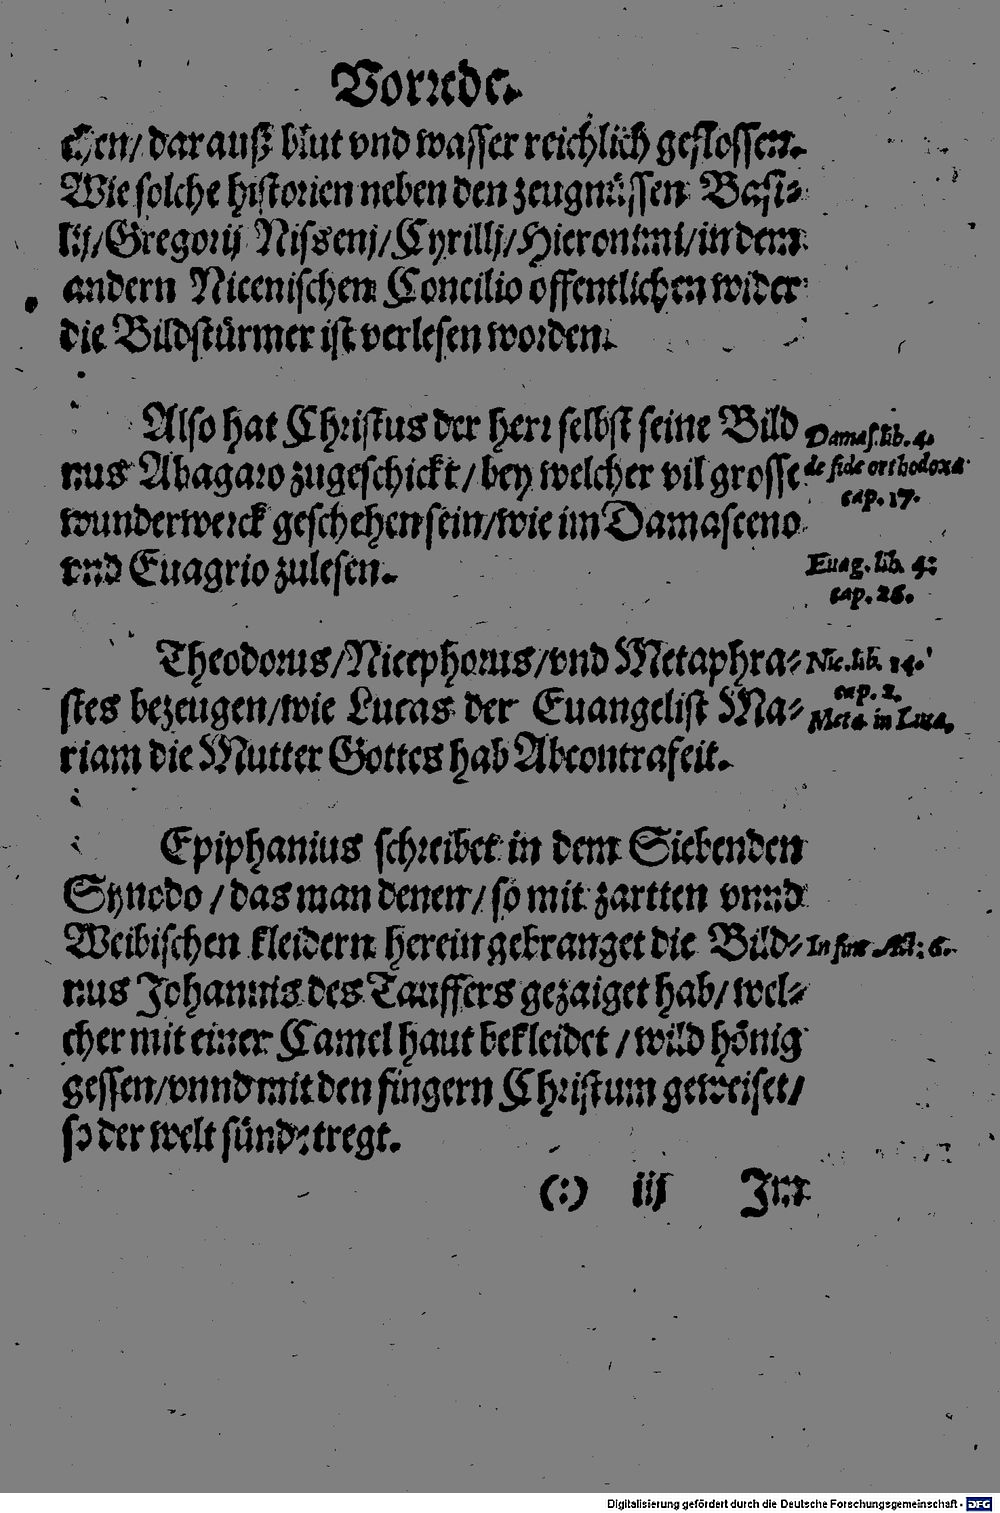 Vorrede.
chen/ darauß blut vnd wasser reichlich geflossen.
Wie solche historien neben den zeugnüssen Basi-
lij/Gregorij Nissenj/Cyrillj/Hieronimi/in dem
andern Nicenischem Concilio offentlichen wider
die Bildstürmer ist verlesen worden.
Also hat Christus der herr selbst seine Bild
nus Abagaro zugeschickt/bey welcher vil grosse
wunderwerck geschehen sein/wie im Damasceno
vnd Euagrio zulesen.
Damas. lib. 4.
de fide orthodoxa
cap. 17.
Euag. lib. 4:
cap. 26.
Theodorus/Nicephorus/vnd Metaphra-
stes bezeugen/wie Lucas der Euangelist Ma-
riam die Mutter Gottes hab Abcontrafeit.
Nic. lib. 14.
cap. 2.
Meta. in Luca.
Epiphanius schreibet in dem Siebenden
Synodo / das man denen/ so mit zartten vnnd
Weibischen kleidern herein gebranget die Bild-
nus Johannis des Tauffers gezaiget hab/ wel-
cher mit einer Camel haut bekleidet / wild hönig
gessen/vnnd mit den fingern Christum geweiset/
so der welt sünde tregt.
In fine Act: 6.
(:) iij Im
Digitalisierung gefördert durch die Deutsche Forschungsgemeinschaft - DFG